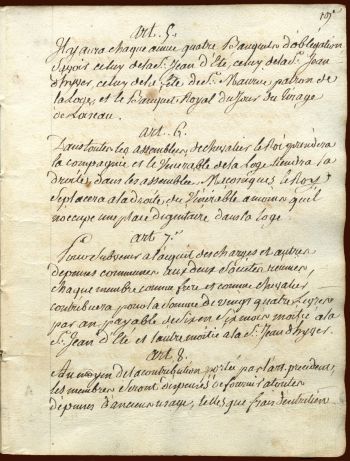 19e
art. 5.
Il y aura chaque année quatre Banquets d'obligation
Savoir celuy de la St. Jean d'Eté, celuy de la St. Jean
d'hyver, celuy de la fête de St. Maurice, patron de
la Loge, et le Banquet Royal du Jour du tirage
de Loiseau.
art. 6.
Dans toutes les assemblées de chevalier le Roi présidera
la compagnie, et le Vénérable de la loge tiendra la
droite, dans les assemblées Maçoniques le Roy
Se placera à la droite du Vénérable amoins qu'il
n'occupe une place dignitaire dans la loge
art 7.e
Pour Subvenir à l'aquit des charges et autres
depenses communes aux deux Sociétés reunies,
chaque membre comme frere et comme chevalier
contribuera pour la Somme de vingt quatre livres
par an payable de Six en Six mois moitié a la
St. Jean d'Eté et l'autre moitié a la St. Jean d'hyver.
art. 8.
Au moyen de la contribution portée par l'art. précédent,
les membres Seront dispensés de fournir a toutes
depenses d'ancien usage, telles que frais d'entretien